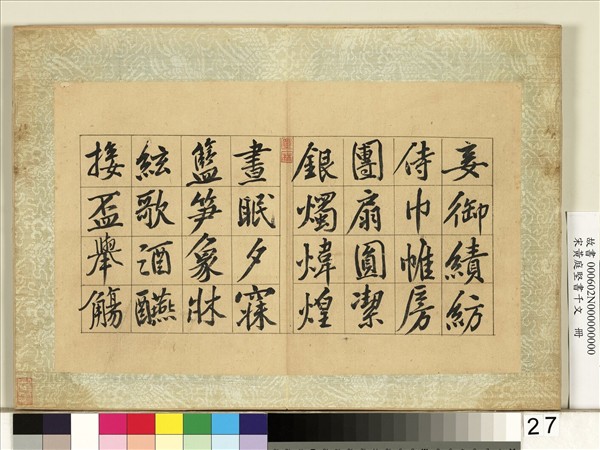 妾御績紡
侍巾帷房
團扇圓潔
銀燭煒煌
晝眠夕寐
籃笋象牀
絃歌酒醼
接盃舉觴
故書 000602N000000000
宋黃庭堅書千文 冊
27